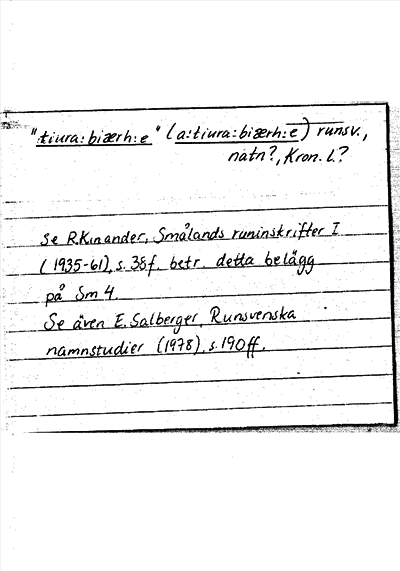 "tiura:biærh:e" (a:tiura:biærh:e) runsv.,
natn?, Kron. L.?
Se R.Kinander, Smålands runinskrifter I
(1935-61), s. 38f. betr. detta belägg
på Sm 4.
Se även E. Salberger, Runsvenska
namnstudier (1978), s. 190ff.